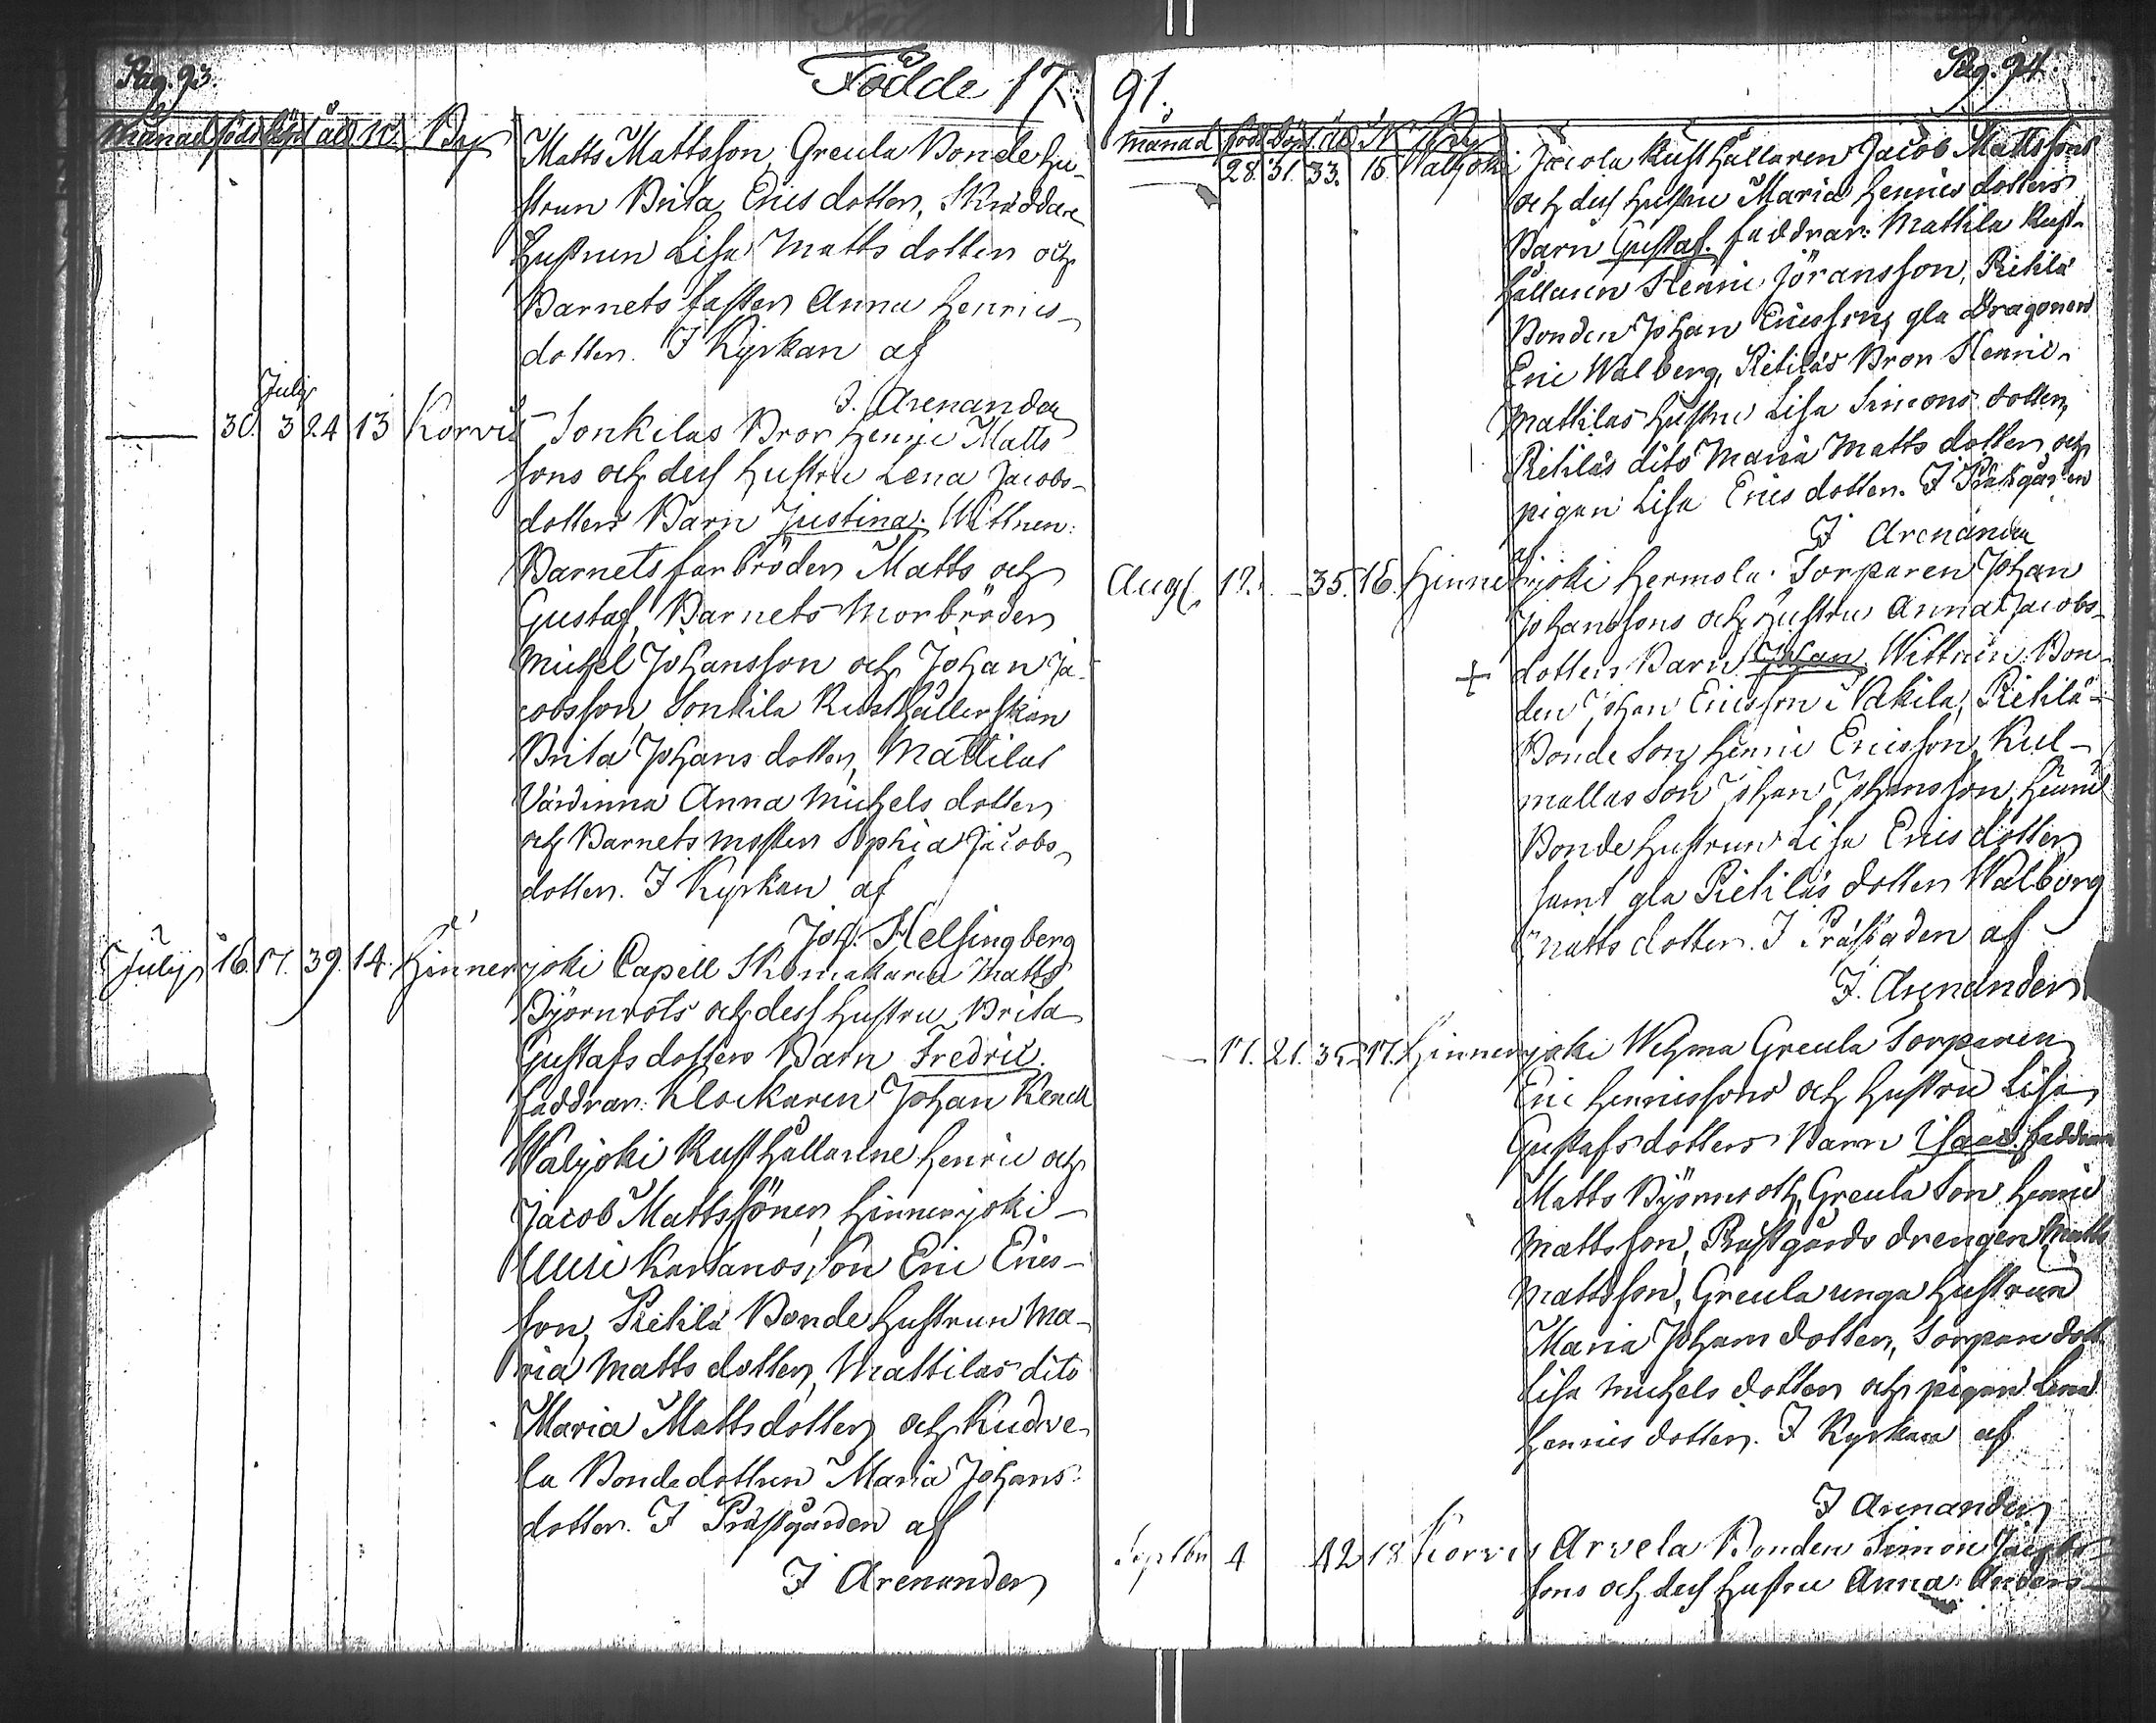 Pag. 93.
Födde 17
Månad född döpt åld N. By
Matts Mattsson, Greula Bonde hu-
strun Brita Erics dotter, Skräddare
hustrun Lisa Matts dotter och
Barnets faster Anna Henrics-
dotter. I Kyrkan af
J. Arenander
July
30. 3 24 13 Korvis Sonkilas Bror Henric Matts
sons och dess hustru Lena Jacobs-
dotters Barn Justina. Wittnen:
Barnets farbröder Matts och
Gustaf, Barnets Morbröder
Michel Johansson och Johan Ja-
cobsson, Sonkila Rusthållerskan
Brita Johans dotter, Mattilas
Värdinna Anna Michels dotter
och Barnets moster Sophia Jacobs-
dotter. I Kyrkan af
Joh. Helsingberg
July 16. 17. 39. 14. Hinnerjoki Capell Skomakaren Matts
Björnrots och dess hustru Brita
Gustafs dotters Barn Fredric.
faddrar: Klockaren Johan Renck
Waljoki Rusthållarene Henric och
Jacob Mattssöner, Hinnerjoki-
Uusi Kartanos Son Eric Erics-
son, Riehilä Bonde hustrun Ma-
ria Matts dotter, Mattilas dito
Maria Matts dotter och Kudve-
la Bondedottren Maria Johans-
dotter. I Prästgården af
J Arenander
91.
Pag. 94.
Månad född döpt åld N. By
28. 31. 33. 15. Waljoki Jacola Rusthållaren Jacob Mattssons
och dess hustru Maria Henrics dotters
Barn Gustaf. faddrar: Mattila Rust-
hållaren Henric Jöransson, Riehilä
Bonden Johan Ericsson, gla Dragonen
Eric Walberg, Riehiläs Bror Henric
Mattilas hustru Lisa Simons dotter,
Riehiläs dito Maria Matts dotter och
pigan Lisa Erics dotter. I Prästgården
af J Arenander
Aug. 12. 35. 16. Hinnerjoki Hermola Torparen Johan
Johanssons och hustru Anna Jacobs-
+ dotters Barn Johan. Wittnen: Bon-
den Johan Ericsson Nakila, Riehilä-
Bonde Son Henric Ericsson, Kul-
mallas Son Johan Johansson,
Bonde hustrun Lisa Erics dotter
samt gla Riehiläs dotter Walborg
Matts dotter. I Prästgården af
J. Arenander
17. 21. 35. 17. Hinnerjoki Wehma Greula Torparen
Eric Henricssons och hustru Lisa
Gustafs dotters Barn Isaac. faddrar
Matts Björnroth, Greula Son Henric
Mattsson, Prästgårds drengen Matts
Mattsson, Greula unga hustrun
Maria Johans dotter, Torpar dott
Lisa Michels dotter och pigan Lena
Henrics dotter. I Kyrkan af
J Arenander
Septbr 4 42 18 Korvis Arvela Bonden Simon Jacobs-
sons och dess hustru Anna Anders-